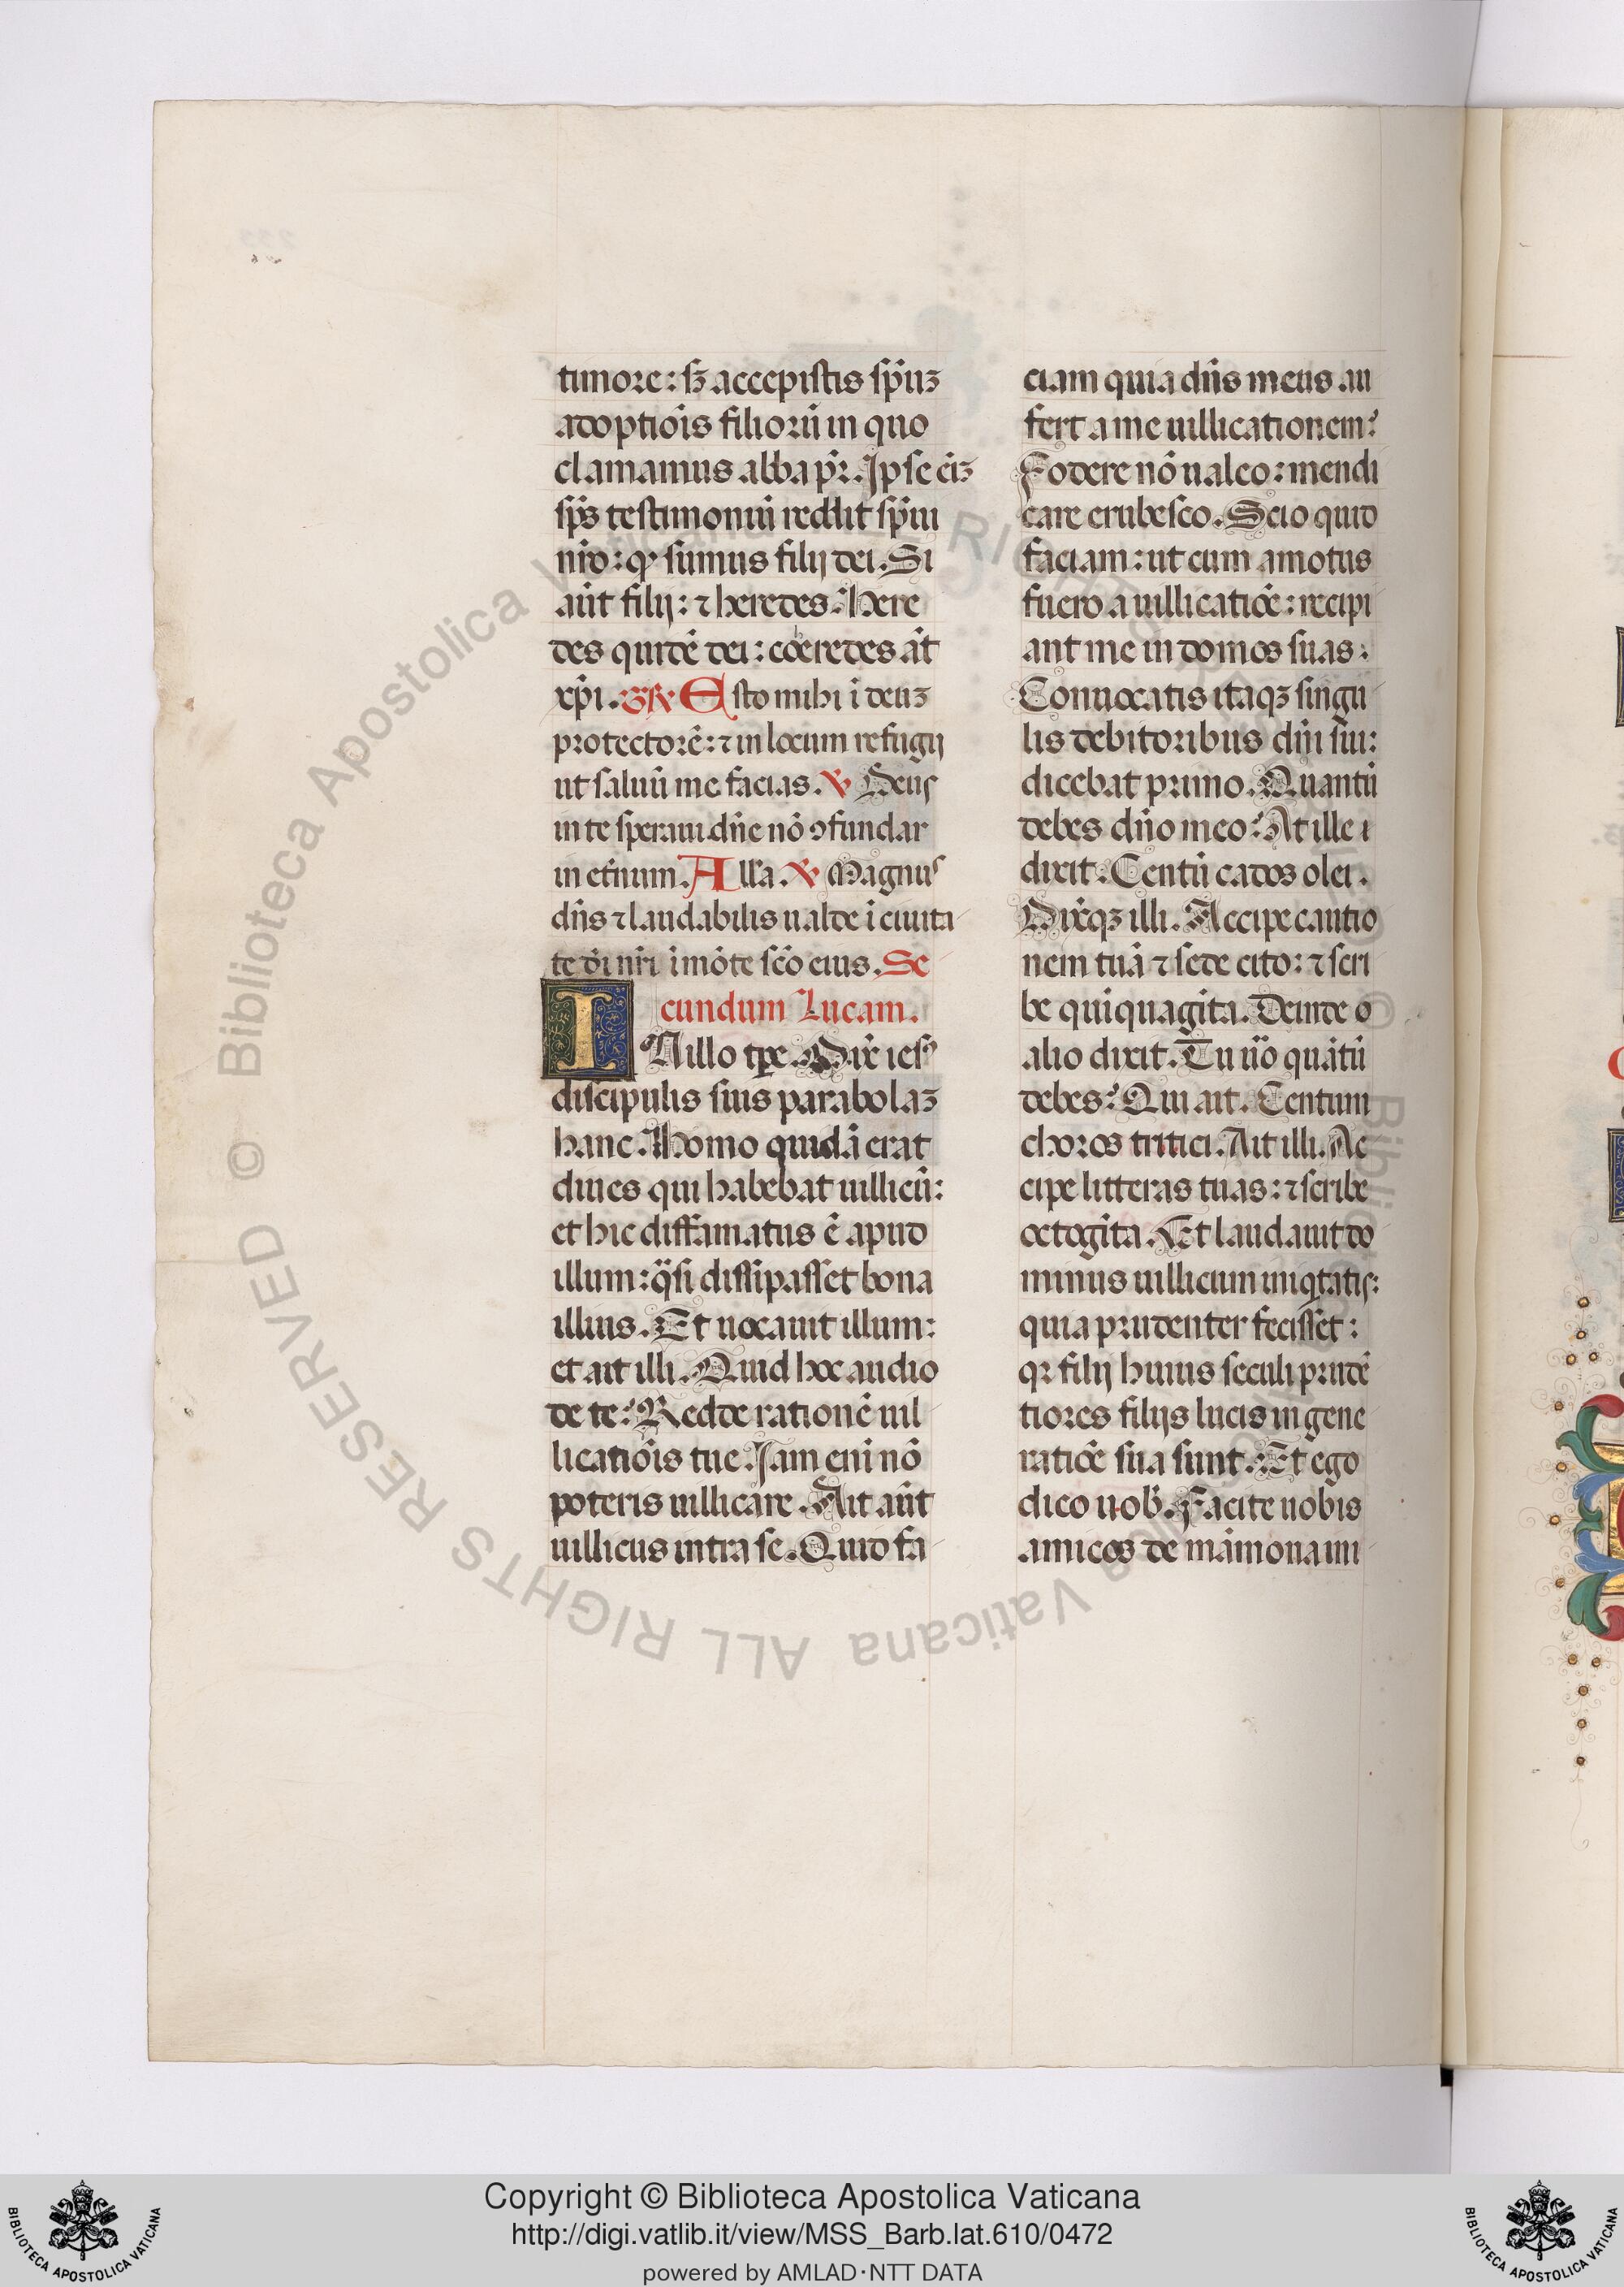 timore: sꝫ accepistis sp̄uꝫ
adoptiōis filioꝛū in quo
clamamus abba pr̄. Ipse eiꝫ
sp̄s testimoniū reddit sp̄ui
nr̄o: ꝙ sumus filij dei. Si
aūt filij: ⁊ heredes. Here
des quidē dei: coheredes āt
xp̄i. GR̄ Esto mihi ī deuꝫ
protectorē: ⁊ in locum refugij
ut saluū me facias. ℣ Deus
in te speraui dn̄e nō ꝯfundar
in et̄num. Alla. ℣ Magnus
dn̄s ⁊ laudabilis ualde ī ciuita
te dī nr̄i ī mōte sc̄o eius. Se
cundum Lucam.
IN illo tp̄e. Dix̄ ies᷒
discipulis suis parabolaꝫ
hanc. Homo quidā erat
diues qui habebat uillicū:
et hic diffamatus ē apud
illum: q̄si dissipasset bona
illius. Et uocauit illum:
et ait illi. Quid hoc audio
de te? Redde rationē uil
licatiōis tue. Iam eni nō
poteris uillicare. Ait aūt
uillicus intra se. Quid fa
ciam quia dn̄s meus au
fert a me uillicationem?
Fodere nō ualeo: mendi
care erubesco. Scio quid
faciam: ut cum amotus
fuero a uillicatiōe: recipi
ant me in domos suas.
Conuocatis itaqꝫ singu
lis debitoribus dn̄i sui:
dicebat primo. Quantū
debes dn̄o meo? At ille
dixit. Centū cados olei.
Dix̄qꝫ illi. Accipe cautio
nem tuā ⁊ sede cito: ⁊ scri
be quīquagīta. Deinde a
alio dixit. Tu ūo quātū
debes? Qui ait. Centum
choros tritici. Ait illi. Ac
cipe litteras tuas: ⁊ scribe
octogīta. Et laudauit do
minus uillicum iniqtatis:
quia prudenter fecisset:
qꝛ filij huius seculi prudē
tiores filijs lucis in gene
ratiōe sua sunt. Et ego
dico uob̄. Facite uobis
amicos de māmona ini
Copyright © Biblioteca Apostolica Vaticana
http://digi.vatlib.it/view/MSS_Barb.lat.610/0472
powered by AMLAD·NTT DATA
BIBLIOTECA APOSTOLICA VATICANA
BIBLIOTECA APOSTOLICA VATICANA
© Biblioteca Apostolica Vaticana ALL RIGHTS RESERVED